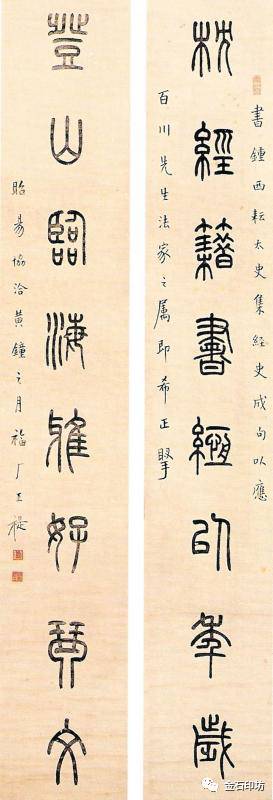 書鍾西耘太史集經史成句以應
枕經籍書緪以年歲
百川先生法家之屬即希正掔
登山臨海雅好琴文
昭昜協洽黃鐘之月福厂王禔
金石印坊